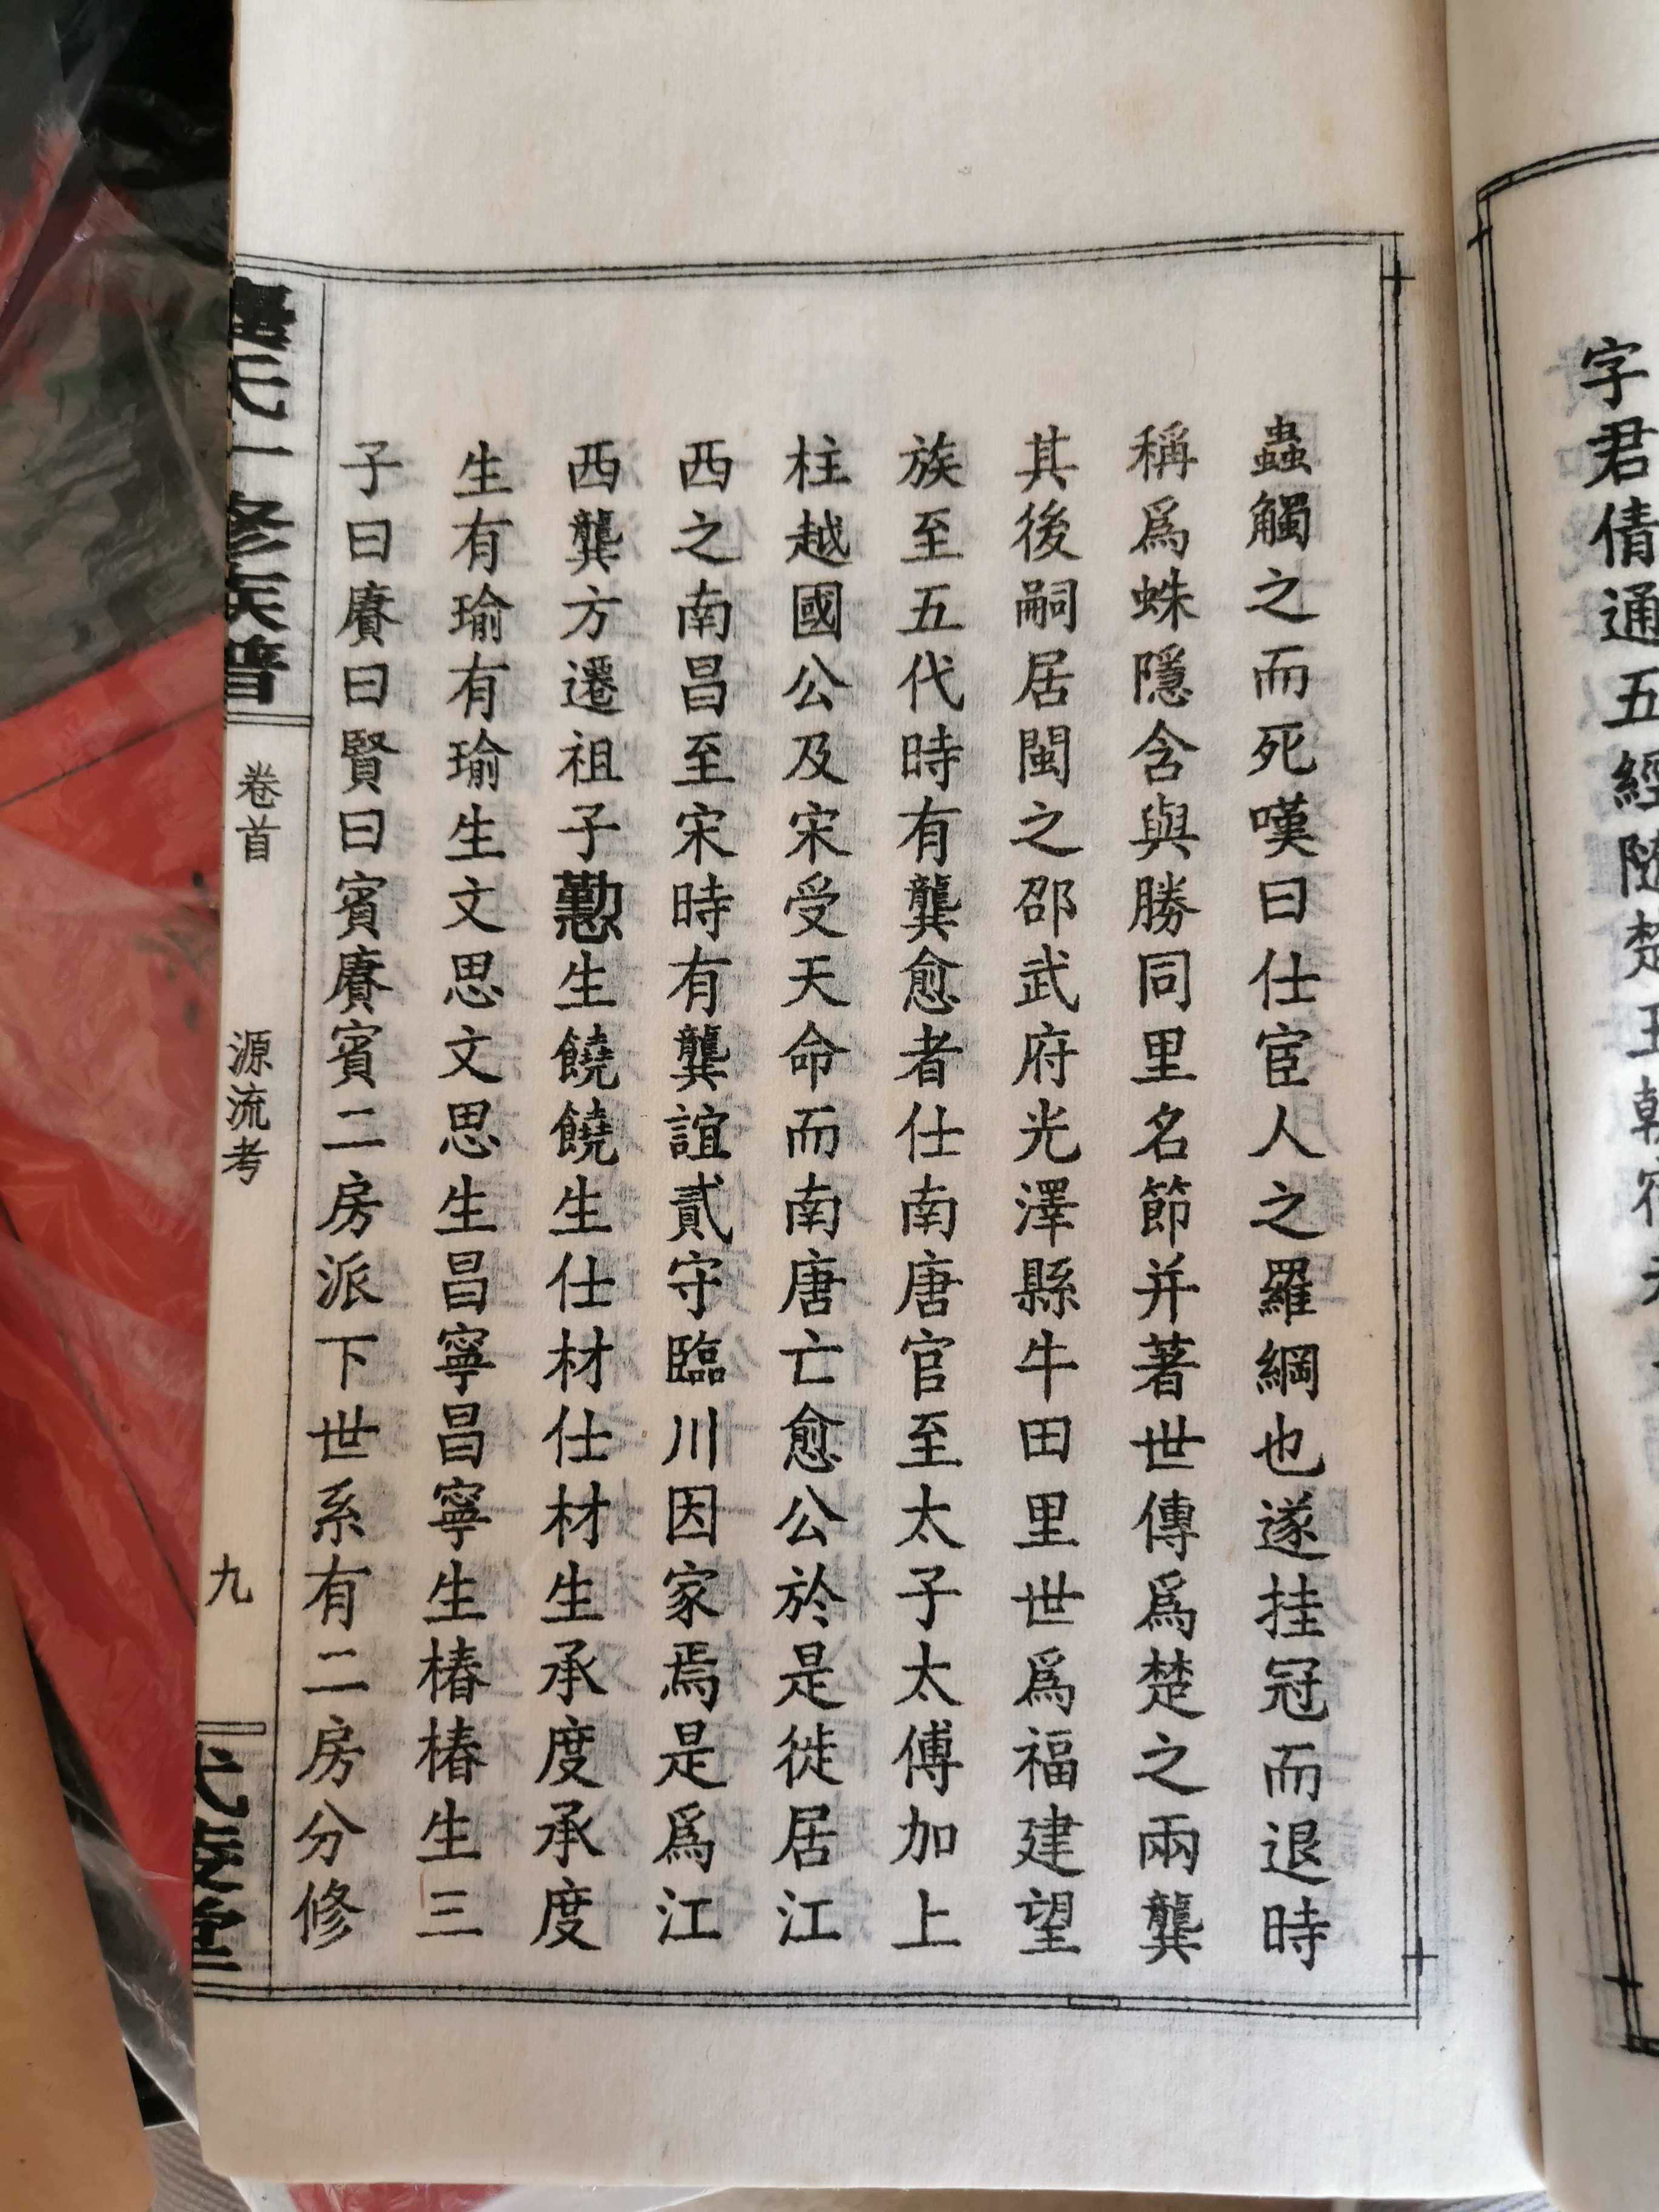 字君倩通五經隨楚王朝
蟲觸之而死嘆曰仕宦人之羅綱也遂挂冠而退時
稱爲蛛隱含與勝同里名節并著世傳爲楚之兩龔
其後嗣居閩之邵武府光澤縣牛田里世爲福建望
族至五代時有龔愈者仕南唐官至太子太傅加上
柱越國公及宋受天命而南唐亡愈公於是徙居江
西之南昌至宋時有龔誼貳守臨川因家焉是爲江
西龔方遷祖子懃生饒饒生仕材仕材生承度承度
生有瑜有瑜生文思文思生昌寧昌寧生椿椿生三
子曰賡曰賢曰賓賡賓二房派下世系有二房分修
修族譜
卷首
源流考
九
堂